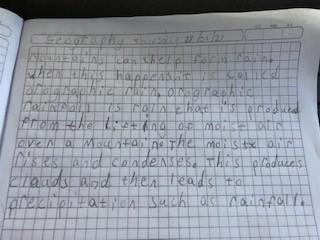 Geography
mountains can help form rain,
when this happens it is called
orographic rain, orographic
rainfall is rain that is produced
from the lifting of moist air
over a mountain. the moist air
rises and condenses. This produces
clouds and then leads to
precipitation such as rainfall.